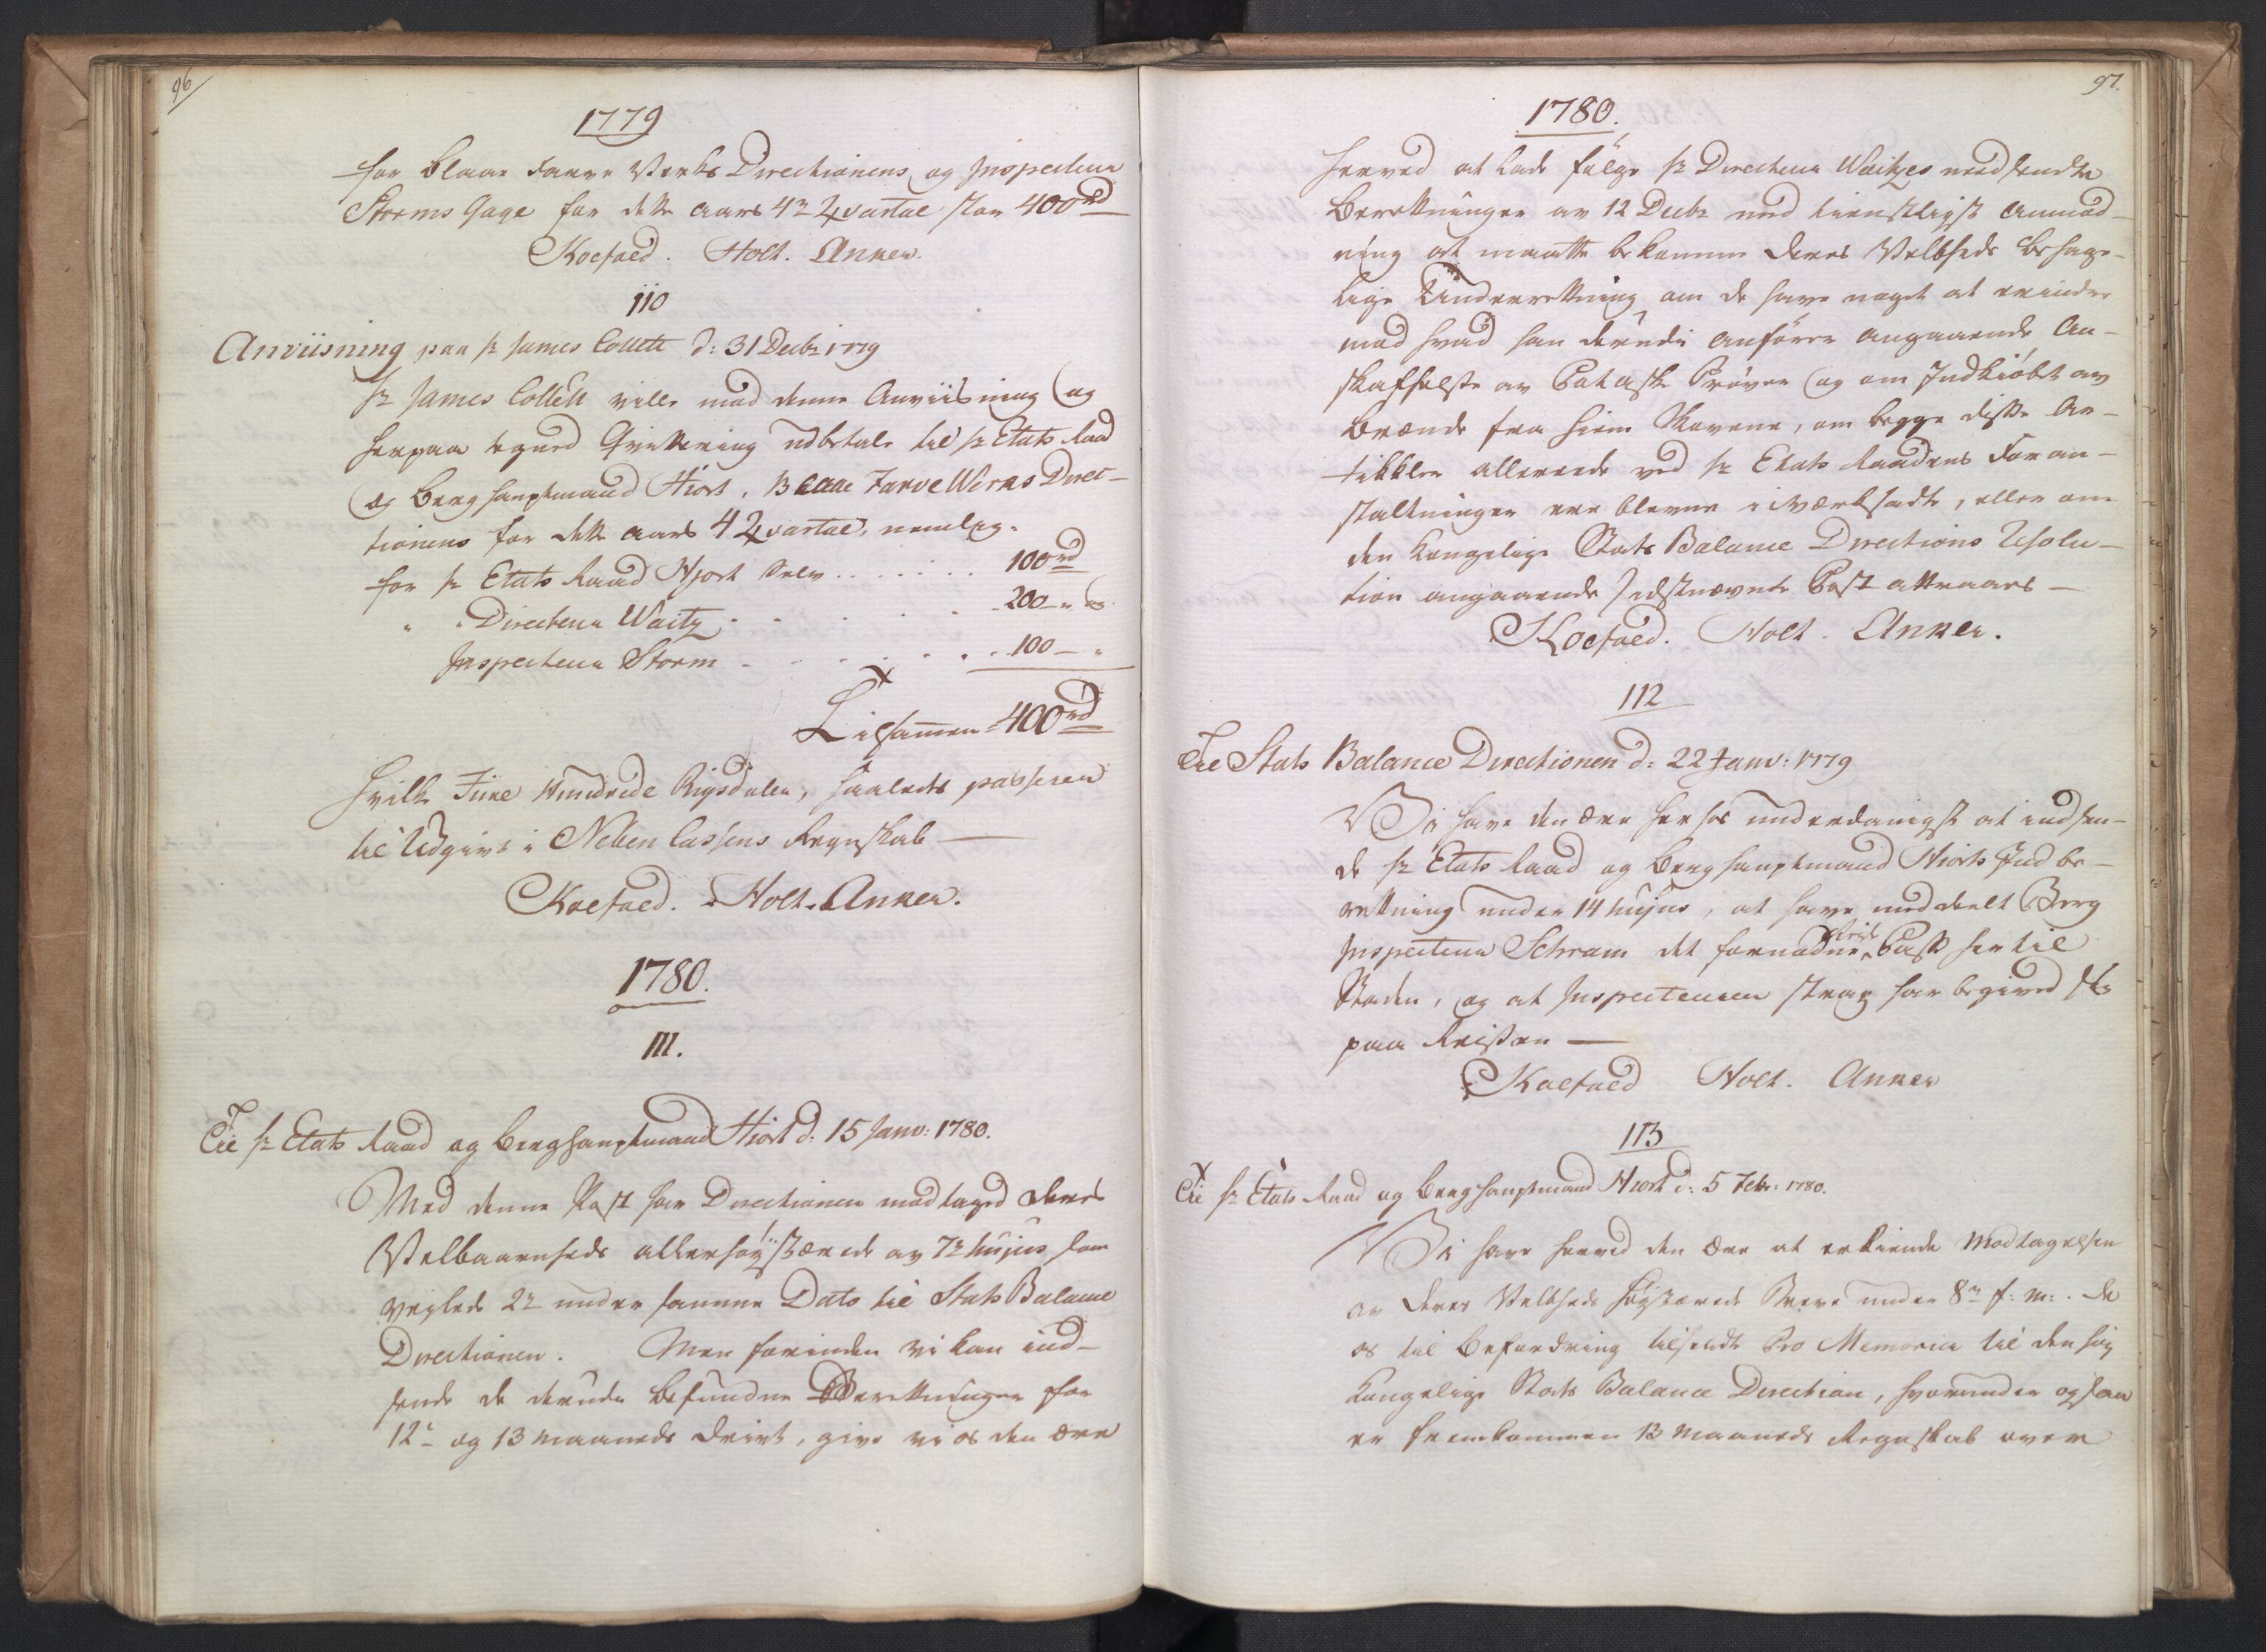 96/
1779
for Blaae Farve Værks Directionens og Inspecteur
Storms Gage for dette aars 4de Qvartal stor 400rd
Koefoed. Holt. Anker.
110
Anviisning paa Hr James Collett d: 31 Decbr 1779
Hr James Collett ville mod denne Anviisning og
herpaa tegned Qvittering udbetale til Hr Etats Raad
og Berghauptmand Hiort, Blaae Farve Werks Direc-
tionens for dette aars 4 Qvartal, nemlig.
for Hr Etats Raad Hjort selv . . . . . . 100rd
" " Directeur Waitz . . . . . 200 - "
Inspecteur Storm - . . . . . . 100 - "
Tilsamen 400rd
hvilke Fiire Hundrede Rigsdaler, saaledes passerer
til Udgivt i Neben Cassens Regnskab —
Koefoed. Holt. Anker.
1780.
111.
Til Hr Etats Raad og Berghauptmand Hiort d: 15 Janv: 1780.
Med denne Post har Directionen modtaged Deres
Velbaarenheds allerhøystærede av 7de hujus, som
under samme Dato til Stats Balance
Directionen. Men forinden vi kan ind-
sende de derudi befundne Beretninger for
12te og 13 Maaneds Drivt, give vi os den Ære
97.
1780.
herved at lade følge Hr Directeur Waitzes medsendte
Beretninger av 12 Decbr med tienstligst Anmod-
ning at maatte bekomme Deres Velbheds behage-
lige Underretning, om De have noget at erindre
mod hvad han derudi anfører angaaende An-
skaffelse av Potaske Prøver og om Indkiøbet av
Brænde fra Hiem Skovene, om begge disse Ar-
tikkler allereede ved Hr Etats Raadens Foran-
staltninger ere blevne i værksadte, eller om
den Kongelige Stats Balance Directions Resolu-
tion angaaende sidstnævnte Post attraaes —
Koefoed. Holt. Anker.
112
Til Stats Balance Directionen d: 22 Janv: 1779
Vi have den Ære herhos underdanigst at indsen-
de Hr Etats Raad og Berghauptmand Hiorts Indbe-
retning under 14 hujus, at have meddeelt Berg
Inspecteur Schram det fornødne Reise Pass her til
Staden, og at Inspecteuren strax har begived sig
paa Reisen —
Koefoed Holt. Anker
113
Til Hr Etats Raad og Berghauptmand Hiort d: 5 Febr: 1780.
Vi have herved den Ære at erkiende Modtagelsen
av Deres Velbheds høystærede Breve under 8de f: M: . De
os til Befordring tilsendte Pro Memoria til den høy
Kongelige Stats Balance Direction, hvorunder ogsaa
er fremkommen 13 Maaneds Regnskab over